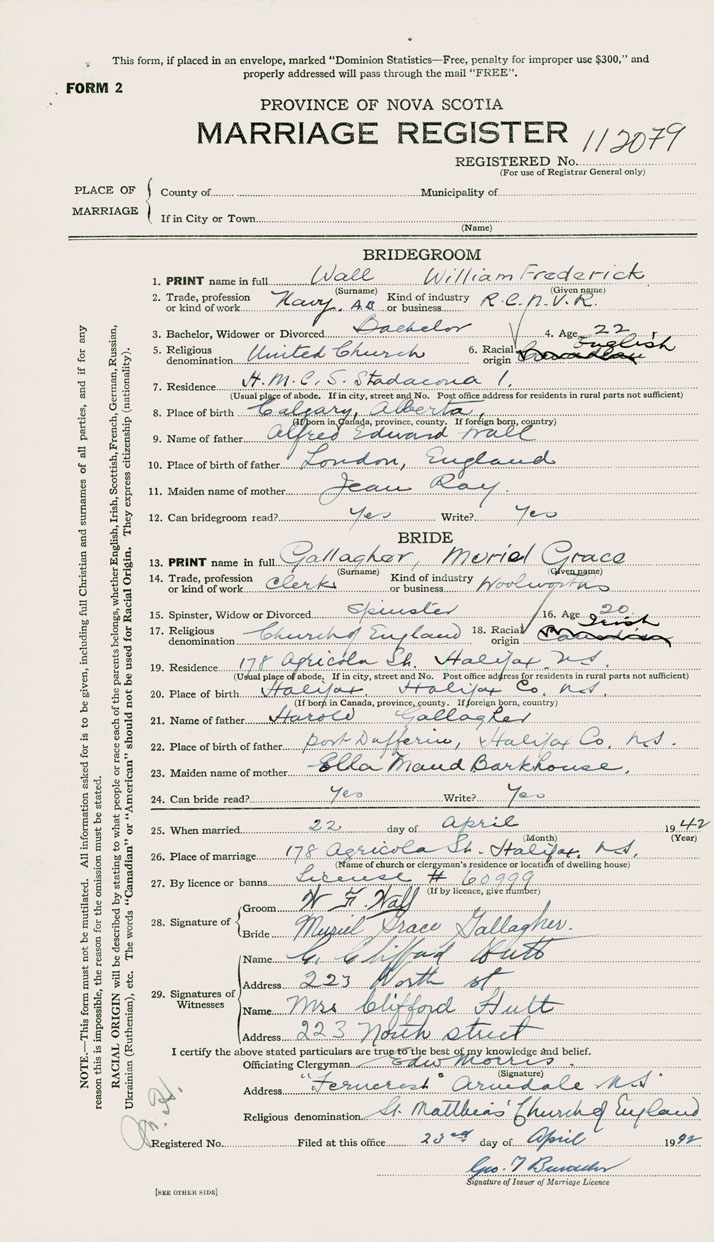 This form, if placed in an envelope, marked "Dominion Statistics—Free, penalty for improper use $300," and
properly addressed will pass through the mail "FREE".
FORM 2
PROVINCE OF NOVA SCOTIA
MARRIAGE REGISTER 112079
REGISTERED No.
(For use of Registrar General only)
PLACE OF MARRIAGE
County of Municipality of
If in City or Town
(Name)
BRIDEGROOM
1. PRINT name in full Wall William Frederick
(Surname) (Given name)
2. Trade, profession or kind of work Navy. A.B. Kind of industry or business R.C.N.V.R.
3. Bachelor, Widower or Divorced Bachelor 4. Age 22
5. Religious denomination United Church 6. Racial origin English
7. Residence H.M.C.S. Stadacona 1.
(Usual place of abode. If in city, street and No. Post office address for residents in rural parts not sufficient)
8. Place of birth Calgary, Alberta,
(If born in Canada, province, county. If foreign born, country)
9. Name of father Alfred Edward Wall
10. Place of birth of father London, England
11. Maiden name of mother Jean Ray.
12. Can bridegroom read? Yes Write? Yes
BRIDE
13. PRINT name in full Gallagher, Muriel Grace
(Surname) (Given name)
14. Trade, profession or kind of work Clerk Kind of industry or business Woolworths
15. Spinster, Widow or Divorced Spinster 16. Age 20
17. Religious denomination Church of England 18. Racial origin Irish
19. Residence 178 Agricola St. Halifax N.S.
(Usual place of abode. If in city, street and No. Post office address for residents in rural parts not sufficient)
20. Place of birth Halifax, Halifax Co. N.S.
(If born in Canada, province, county. If foreign born, country)
21. Name of father Harold Gallagher
22. Place of birth of father Port Dufferin, Halifax Co. N.S.
23. Maiden name of mother Ella Maud Barkhouse,
24. Can bride read? Yes Write? Yes
25. When married 22 day of April 1942
(Month) (Year)
26. Place of marriage 178 Agricola St. Halifax, N.S.
(Name of church or clergyman's residence or location of dwelling house)
27. By licence or banns License # 60999
(If by licence, give number)
28. Signature of
Groom W. F. Wall
Bride Muriel Grace Gallagher.
29. Signatures of Witnesses
Name C. Clifford Hutt
Address 223 North st
Name Mrs Clifford Hutt
Address 223 North street
I certify the above stated particulars are true to the best of my knowledge and belief.
Officiating Clergyman Edw Morris.
(Signature)
Address "Ferncrest" Armdale N.S
Religious denomination St. Matthias' Church of England
Registered No. Filed at this office 23rd day of April 1942
Geo. T
Signature of Issuer of Marriage Licence
[SEE OTHER SIDE]
NOTE.—This form must not be mutilated. All information asked for is to be given, including full Christian and surnames of all parties, and if for any
reason this is impossible, the reason for the omission must be stated.
RACIAL ORIGIN will be described by stating to what people or race each of the parents belongs, whether English, Irish, Scottish, French, German, Russian,
Ukrainian (Ruthenian), etc. The words "Canadian" or "American" should not be used for Racial Origin. They express citizenship (nationality).